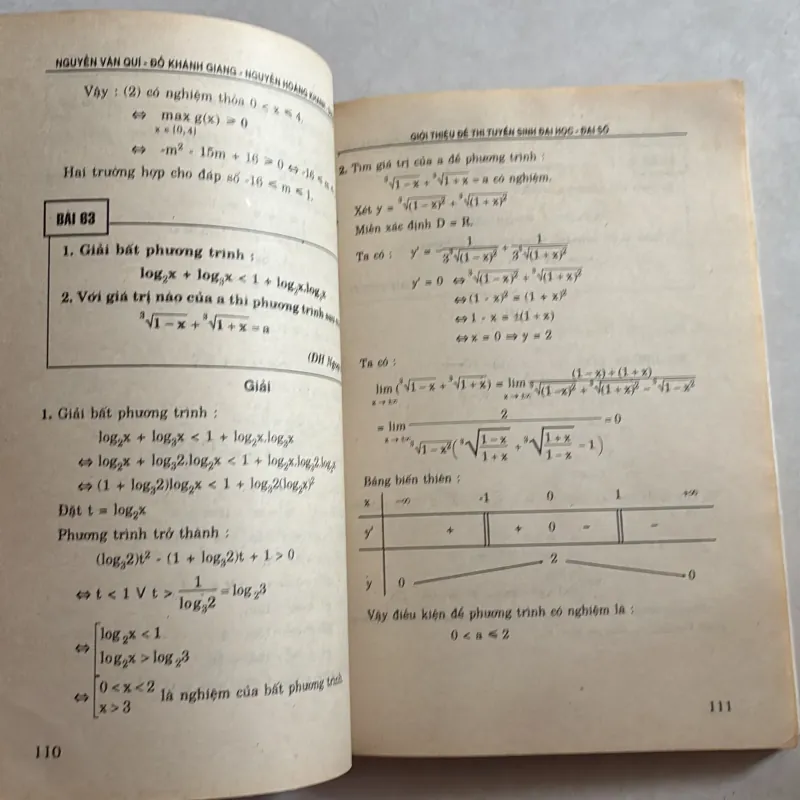 NGUYỄN VĂN QUÍ - ĐỖ KHÁNH GIANG - NGUYỄN HOÀNG KHANH
Vậy : (2) có nghiệm thỏa 0 < x ⩽ 4,
⇔ max g(x) ⩾ 0
x ∈ (0,4]
⇔ -m² - 15m + 16 ⩾ 0 ⇔ -16 ⩽
Hai trường hợp cho đáp số -16 ⩽ m ⩽ 1.
BÀI 63
1. Giải bất phương trình :
log₂x + log₃x < 1 + log₂x.log₃x
2. Với giá trị nào của a thì phương trình
³√(1 – x) + ³√(1 + x) = a
(ĐH
Giải
1. Giải bất phương trình :
log₂x + log₃x < 1 + log₂x.log₃x
⇔ log₂x + log₃2.log₂x < 1 + log₂x.log₃2.log₂x
⇔ (1 + log₃2)log₂x < 1 + log₃2(log₂x)²
Đặt t = log₂x
Phương trình trở thành :
(log₃2)t² - (1 + log₃2)t + 1 > 0
⇔ t < 1 V t > 1/log₃2 = log₂3
⇔ [ log₂x < 1
log₂x > log₂3
⇔ [ 0 < x < 2
x > 3
là nghiệm của bất phương trình.
110
GIỚI THIỆU ĐỀ THI TUYỂN SINH ĐẠI HỌC - ĐẠI SỐ
2. Tìm giá trị của a để phương trình :
³√(1 – x) + ³√(1 + x) = a có nghiệm.
Xét y = ³√(1 – x)² + ³√(1 + x)²
Miền xác định D = R.
Ta có : y' = - 1/(3 ³√(1 – x)²) + 1/(3 ³√(1 + x)²)
y' = 0 ⇔ ³√(1 – x)² + ³√(1 + x)²
⇔ (1 - x)² = (1 + x)²
⇔ 1 - x = ±(1 + x)
⇔ x = 0 ⇒ y = 2
Ta có :
lim (³√(1 – x) + ³√(1 + x)) = lim ((1 – x) + (1 + x))/(³√(1 – x)² + ³√(1 + x)² – ³√(1 – x²))
x → ±∞ x → ±∞
= lim 2/(³√(1 – x²)(³√((1 – x)/(1 + x)) + ³√((1 + x)/(1 – x)) – 1)) = 0
x → ±∞
Bảng biến thiên :
x –∞ -1 0 1 +∞
y' + || + 0 – || –
y 0 2 0
Vậy điều kiện để phương trình có nghiệm là :
0 < a ⩽ 2
111